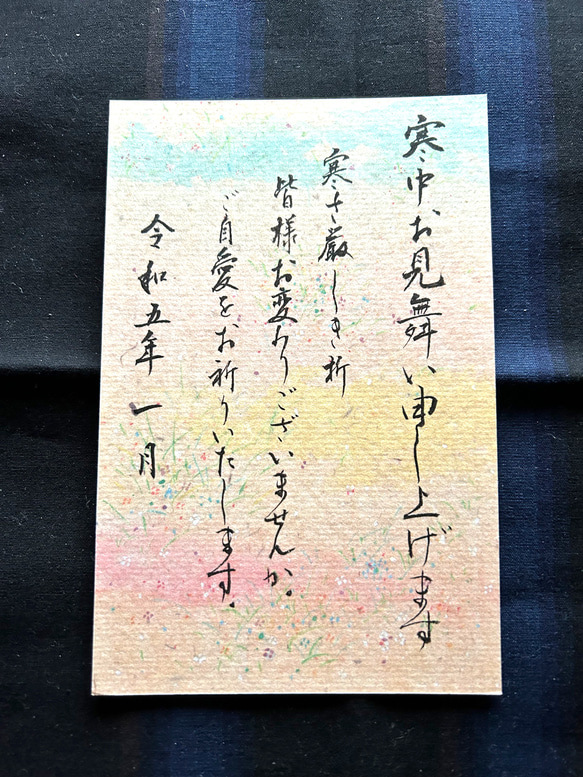 寒中お見舞い申し上げます
寒さ厳しき折
皆様お変わりございませんか。
ご自愛をお祈りいたします。
令和五年 一月